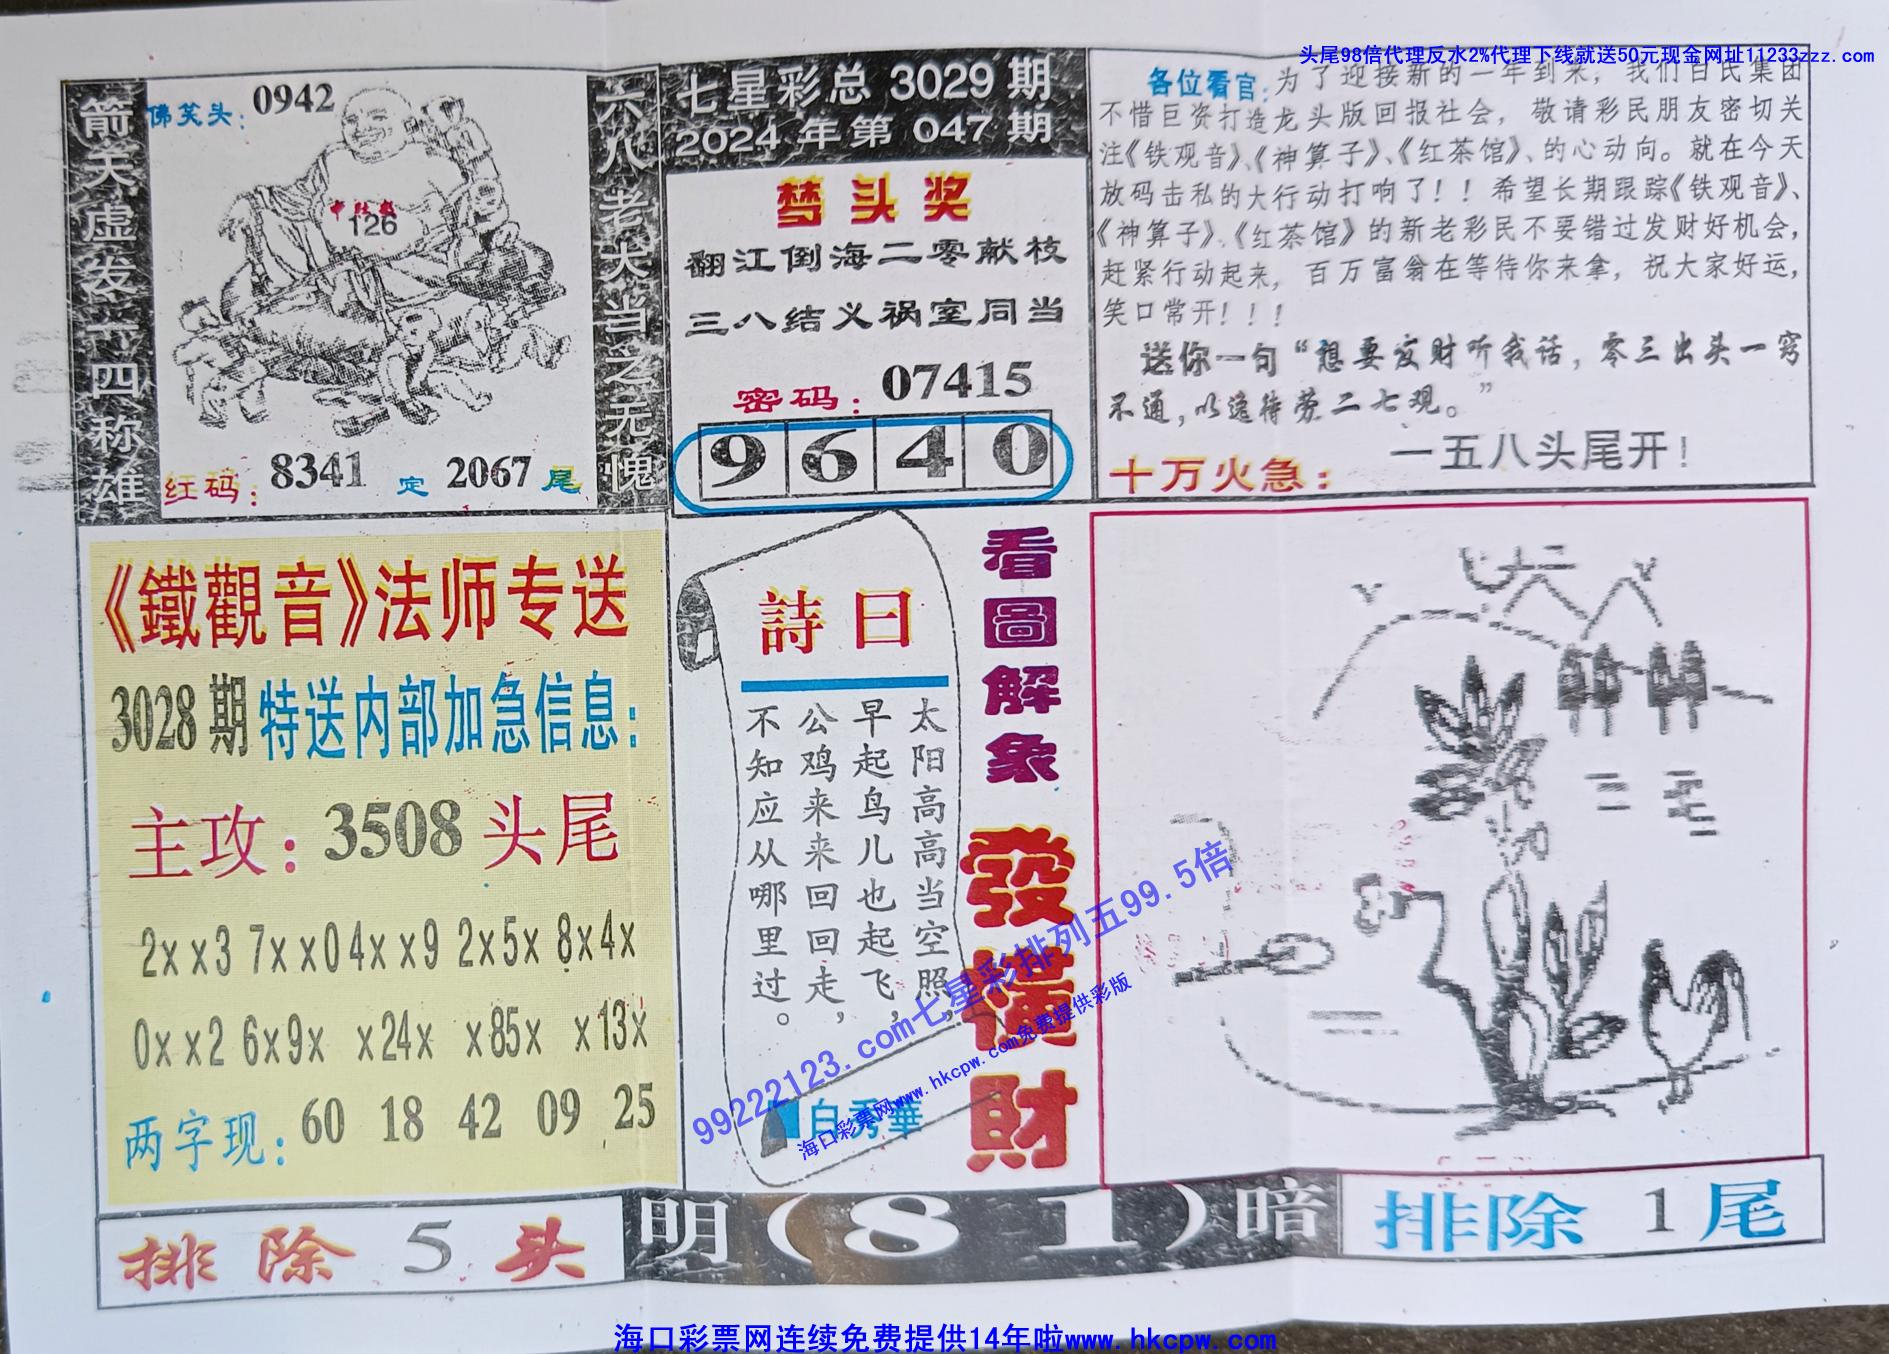 头尾98倍代理反水2%代理下线就送50元现金网址11233zzz.com
箭天虚发六四称雄
佛笑头：0942
126
红码：8341 定 2067 尾
六八老大当之无愧
七星彩总 3029 期
2024 年第 047 期
梦头奖
翻江倒海二零献枝
三八结义祸室同当
密码：07415
9 6 4 0
各位看官：为了迎接新的一年到来，我们百民集团
不惜巨资打造龙头版回报社会，敬请彩民朋友密切关
注《铁观音》、《神算子》、《红茶馆》、的心动向。就在今天
放码击私的大行动打响了！！希望长期跟踪《铁观音》、
《神算子》、《红茶馆》的新老彩民不要错过发财好机会，
赶紧行动起来，百万富翁在等待你来拿，祝大家好运，
笑口常开！！！
送你一句“想要发财听我话，零三出头一窍
不通，以逸待劳二七观。”
十万火急：一五八头尾开！
《鐵觀音》法师专送
3028期特送内部加急信息：
主攻：3508头尾
2xx3 7xx0 4xx9 2x5x 8x4x
0xx2 6x9x x24x x85x x13x
两字现：60 18 42 09 25
詩曰
太阳高高当空照，
早起鸟儿也起飞，
公鸡来来回回走，
不知应从哪里过。
白秀華
看圖解象
發橫財
99222123.com七星彩排列五99.5倍
海口彩票网www.hkcpw.com免费提供彩版
排除 5 头
明（81）暗
排除 1 尾
海口彩票网连续免费提供14年啦www.hkcpw.com